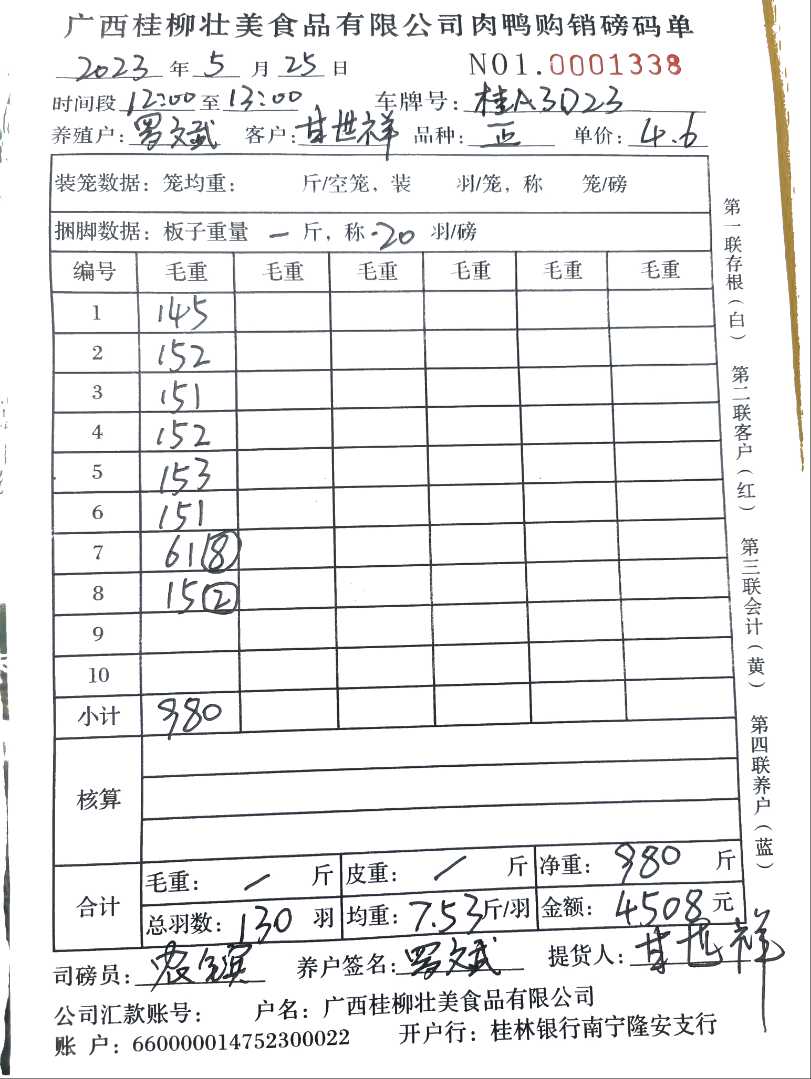 广西桂柳壮美食品有限公司肉鸭购销磅码单
2023 年 5 月 25 日 NO1.0001338
时间段 12:00 至 13:00 车牌号: 桂A3D23
养殖户: 罗文武 客户: 甘世祥 品种: 正 单价: 4.6
装笼数据: 笼均重: 斤/空笼, 装 羽/笼, 称 笼/磅
捆脚数据: 板子重量 一 斤, 称 20 羽/磅
编号 毛重 毛重 毛重 毛重 毛重 毛重
1 145
2 152
3 151
4 152
5 153
6 151
7 61⑧
8 15②
9
10
小计 980
核算
合计 毛重: / 斤 皮重: / 斤 净重: 980 斤
总羽数: 130 羽 均重: 7.53 斤/羽 金额: 4508 元
司磅员: 养户签名: 罗文武 提货人: 甘世祥
公司汇款账号: 户名: 广西桂柳壮美食品有限公司
账 户: 660000014752300022 开户行: 桂林银行南宁隆安支行
第一联存根(白) 第二联客户(红) 第三联会计(黄) 第四联养户(蓝)